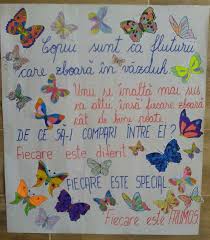 Copiii sunt ca fluturii
care zboară în văzduh.
Unii se înalţă mai sus
ca alţii, însă fiecare zboară
cât de bine poate.
DE CE SĂ-I COMPARI ÎNTRE EI?
Fiecare este diferit
FIECARE ESTE SPECIAL
Fiecare este FRUMOS